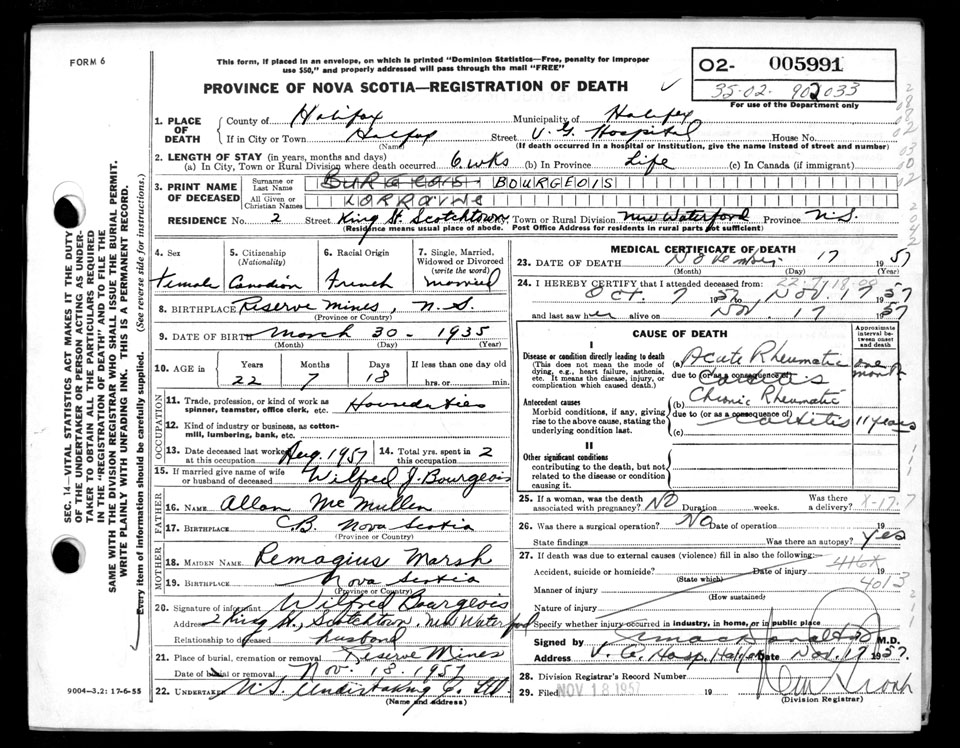 FORM 6
This form, if placed in an envelope, on which is printed "Dominion Statistics—Free, penalty for improper
use $50," and properly addressed will pass through the mail "FREE"
PROVINCE OF NOVA SCOTIA—REGISTRATION OF DEATH
02- 005991
35-02. 902033
For use of the Department only
1. PLACE OF DEATH
County of Halifax Municipality of Halifax
If in City or Town Halifax Street V. G. Hospital House No.
(Name) (If death occurred in a hospital or institution, give the name instead of street and number)
2. LENGTH OF STAY (in years, months and days)
(a) In City, Town or Rural Division where death occurred 6 wks (b) In Province Life (c) In Canada (if immigrant)
3. PRINT NAME OF DECEASED
Surname or Last Name BOURGEOIS
All Given or Christian Names LORRAINE
RESIDENCE No. 2 Street King St. Scotchtown, Town or Rural Division New Waterford Province N.S.
(Residence means usual place of abode. Post Office Address for residents in rural parts not sufficient)
4. Sex 5. Citizenship (Nationality) 6. Racial Origin 7. Single, Married, Widowed or Divorced (write the word)
Female Canadian French Married
8. BIRTHPLACE Reserve Mines, N.S.
(Province or Country)
9. DATE OF BIRTH March 30 - 1935
(Month) (Day) (Year)
10. AGE in Years Months Days If less than one day old
22 7 18 hrs. or min.
OCCUPATION
11. Trade, profession, or kind of work as
spinner, teamster, office clerk, etc. Houseduties
12. Kind of industry or business, as cotton-
mill, lumbering, bank, etc.
13. Date deceased last worked at this occupation Aug. 1957 14. Total yrs. spent in this occupation 2
15. If married give name of wife
or husband of deceased Wilfred J. Bourgeois
FATHER
16. NAME Allan McMullen
17. BIRTHPLACE C.B. Nova Scotia
(Province or Country)
MOTHER
18. MAIDEN NAME Remagius Marsh
19. BIRTHPLACE Nova Scotia
(Province or Country)
20. Signature of informant Wilfred Bourgeois
Address 2 King St., Scotchtown, New Waterford
Relationship to deceased husband
21. Place of burial, cremation or removal Reserve Mines
Date of burial or removal Nov. 18, 1957
22. UNDERTAKER N.S. Undertaking Co. Ltd
(Name and address)
9004-3.2: 17-6-55
MEDICAL CERTIFICATE OF DEATH
23. DATE OF DEATH November 17 1957
(Month) (Day) (Year)
24. I HEREBY CERTIFY that I attended deceased from
Oct. 7 1957 to Nov. 17 1957
and last saw her alive on Nov. 17 1957
CAUSE OF DEATH
Approximate interval between onset and death
I
Disease or condition directly leading to death
(This does not mean the mode of dying, e.g., heart failure, asthenia, etc. It means the disease, injury, or complication which caused death.)
(a) Acute Rheumatic one month
due to (or as a consequence of)
Carditis
Antecedent causes
Morbid conditions, if any, giving rise to the above cause, stating the underlying condition last.
(b) Chronic Rheumatic
due to (or as a consequence of)
Carditis 11 years
(c)
II
Other significant conditions
contributing to the death, but not related to the disease or condition causing it.
25. If a woman, was the death associated with pregnancy? NO Duration weeks. Was there a delivery? X-17.7
26. Was there a surgical operation? No Date of operation 19
State findings Was there an autopsy? Yes
27. If death was due to external causes (violence) fill in also the following:
Accident, suicide or homicide? Date of injury 19
(State which) 416X
Manner of injury 4013
(How sustained)
Nature of injury
Specify whether injury occurred in industry, in home, or in public place
Signed by M.D.
Address V. G. Hosp. Halifax Date Nov. 17 1957.
28. Division Registrar's Record Number
29. Filed NOV 18 1957 19
(Division Registrar)
SEC. 14—VITAL STATISTICS ACT MAKES IT THE DUTY
OF THE UNDERTAKER OR PERSON ACTING AS UNDER-
TAKER TO OBTAIN ALL THE PARTICULARS REQUIRED
IN THE "REGISTRATION OF DEATH" AND FILE THE
SAME WITH THE DIVISION REGISTRAR WHO SHALL ISSUE THE BURIAL PERMIT.
WRITE PLAINLY WITH UNFADING INK. THIS IS A PERMANENT RECORD.
Every item of information should be carefully supplied. (See reverse side for instructions.)